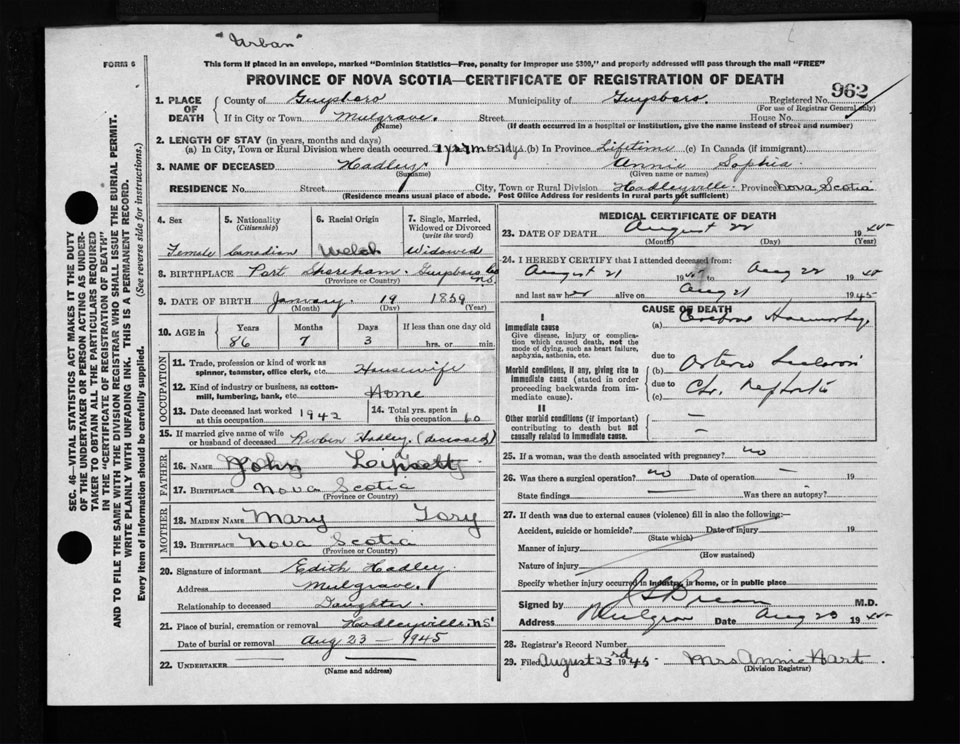 "Urban"
FORM 6
This form if placed in an envelope, marked "Dominion Statistics—Free, penalty for improper use $300," and properly addressed will pass through the mail "FREE"
PROVINCE OF NOVA SCOTIA—CERTIFICATE OF REGISTRATION OF DEATH
962
1. PLACE OF DEATH { County of Guysboro Municipality of Guysboro. Registered No.
(For use of Registrar General only)
If in City or Town Mulgrave. Street House No.
(Name) (If death occurred in a hospital or institution, give the name instead of street and number)
2. LENGTH OF STAY (in years, months and days)
(a) In City, Town or Rural Division where death occurred (b) In Province Lifetime (c) In Canada (if immigrant)
3. NAME OF DECEASED Hadley. Annie Sophia.
(Surname) (Given name or names)
RESIDENCE No. Street City, Town or Rural Division Hadleyville. Province Nova Scotia
(Residence means usual place of abode. Post Office Address for residents in rural parts not sufficient)
4. Sex
Female
5. Nationality
(Citizenship)
Canadian
6. Racial Origin
Welch
7. Single, Married, Widowed or Divorced
(write the word)
Widowed
8. BIRTHPLACE Port Shoreham. Guysboro Co N.S.
(Province or Country)
9. DATE OF BIRTH January. 19 1859
(Month) (Day) (Year)
10. AGE in Years Months Days If less than one day old
86 7 3 hrs. or min.
OCCUPATION
11. Trade, profession or kind of work as
spinner, teamster, office clerk, etc. Housewife
12. Kind of industry or business, as cotton-
mill, lumbering, bank, etc. Home
13. Date deceased last worked at this occupation 1942
14. Total yrs. spent in this occupation 60
15. If married give name of wife
or husband of deceased Reuben Hadley. (deceased)
FATHER
16. NAME John Lipsett
17. BIRTHPLACE Nova Scotia
(Province or Country)
MOTHER
18. MAIDEN NAME Mary Tory
19. BIRTHPLACE Nova Scotia
(Province or Country)
20. Signature of informant Edith Hadley.
Address Mulgrave.
Relationship to deceased Daughter.
21. Place of burial, cremation or removal Hadleyville. NS'
Date of burial or removal Aug 23 — 1945
22. UNDERTAKER
(Name and address)
MEDICAL CERTIFICATE OF DEATH
23. DATE OF DEATH August 22 19 45
(Month) (Day) (Year)
24. I HEREBY CERTIFY that I attended deceased from:
August 21 19 to Aug 22 19 45
and last saw her alive on Aug 21 1945
CAUSE OF DEATH
I
Immediate cause
Give disease, injury or complica-
tion which caused death, not the
mode of dying, such as heart failure,
asphyxia, asthenia, etc.
(a)
due to
Morbid conditions, if any, giving rise to
immediate cause (stated in order
proceeding backwards from im-
mediate cause).
(b)
due to
(c) Chr.
II
Other morbid conditions (if important)
contributing to death but not
causally related to immediate cause.
—
—
25. If a woman, was the death associated with pregnancy? no
26. Was there a surgical operation? no Date of operation —
State findings — Was there an autopsy?
27. If death was due to external causes (violence) fill in also the following:—
Accident, suicide or homicide? Date of injury 19
(State which)
Manner of injury
(How sustained)
Nature of injury
Specify whether injury occurred in industry, in home, or in public place
Signed by M.D.
Address Mulgrave Date Aug 23 19 45
28. Registrar's Record Number
29. Filed August 23rd 1945 Mrs Annie Hart.
(Division Registrar)
SEC. 46—VITAL STATISTICS ACT MAKES IT THE DUTY
OF THE UNDERTAKER OR PERSON ACTING AS UNDER-
TAKER TO OBTAIN ALL THE PARTICULARS REQUIRED
IN THE "CERTIFICATE OF REGISTRATION OF DEATH"
AND TO FILE THE SAME WITH THE DIVISION REGISTRAR WHO SHALL ISSUE THE BURIAL PERMIT.
WRITE PLAINLY WITH UNFADING INK. THIS IS A PERMANENT RECORD.
Every item of information should be carefully supplied. (See reverse side for instructions.)